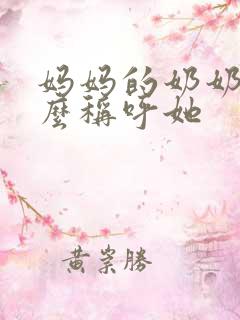 妈妈的奶奶
麼稱呼她
黄崇勝